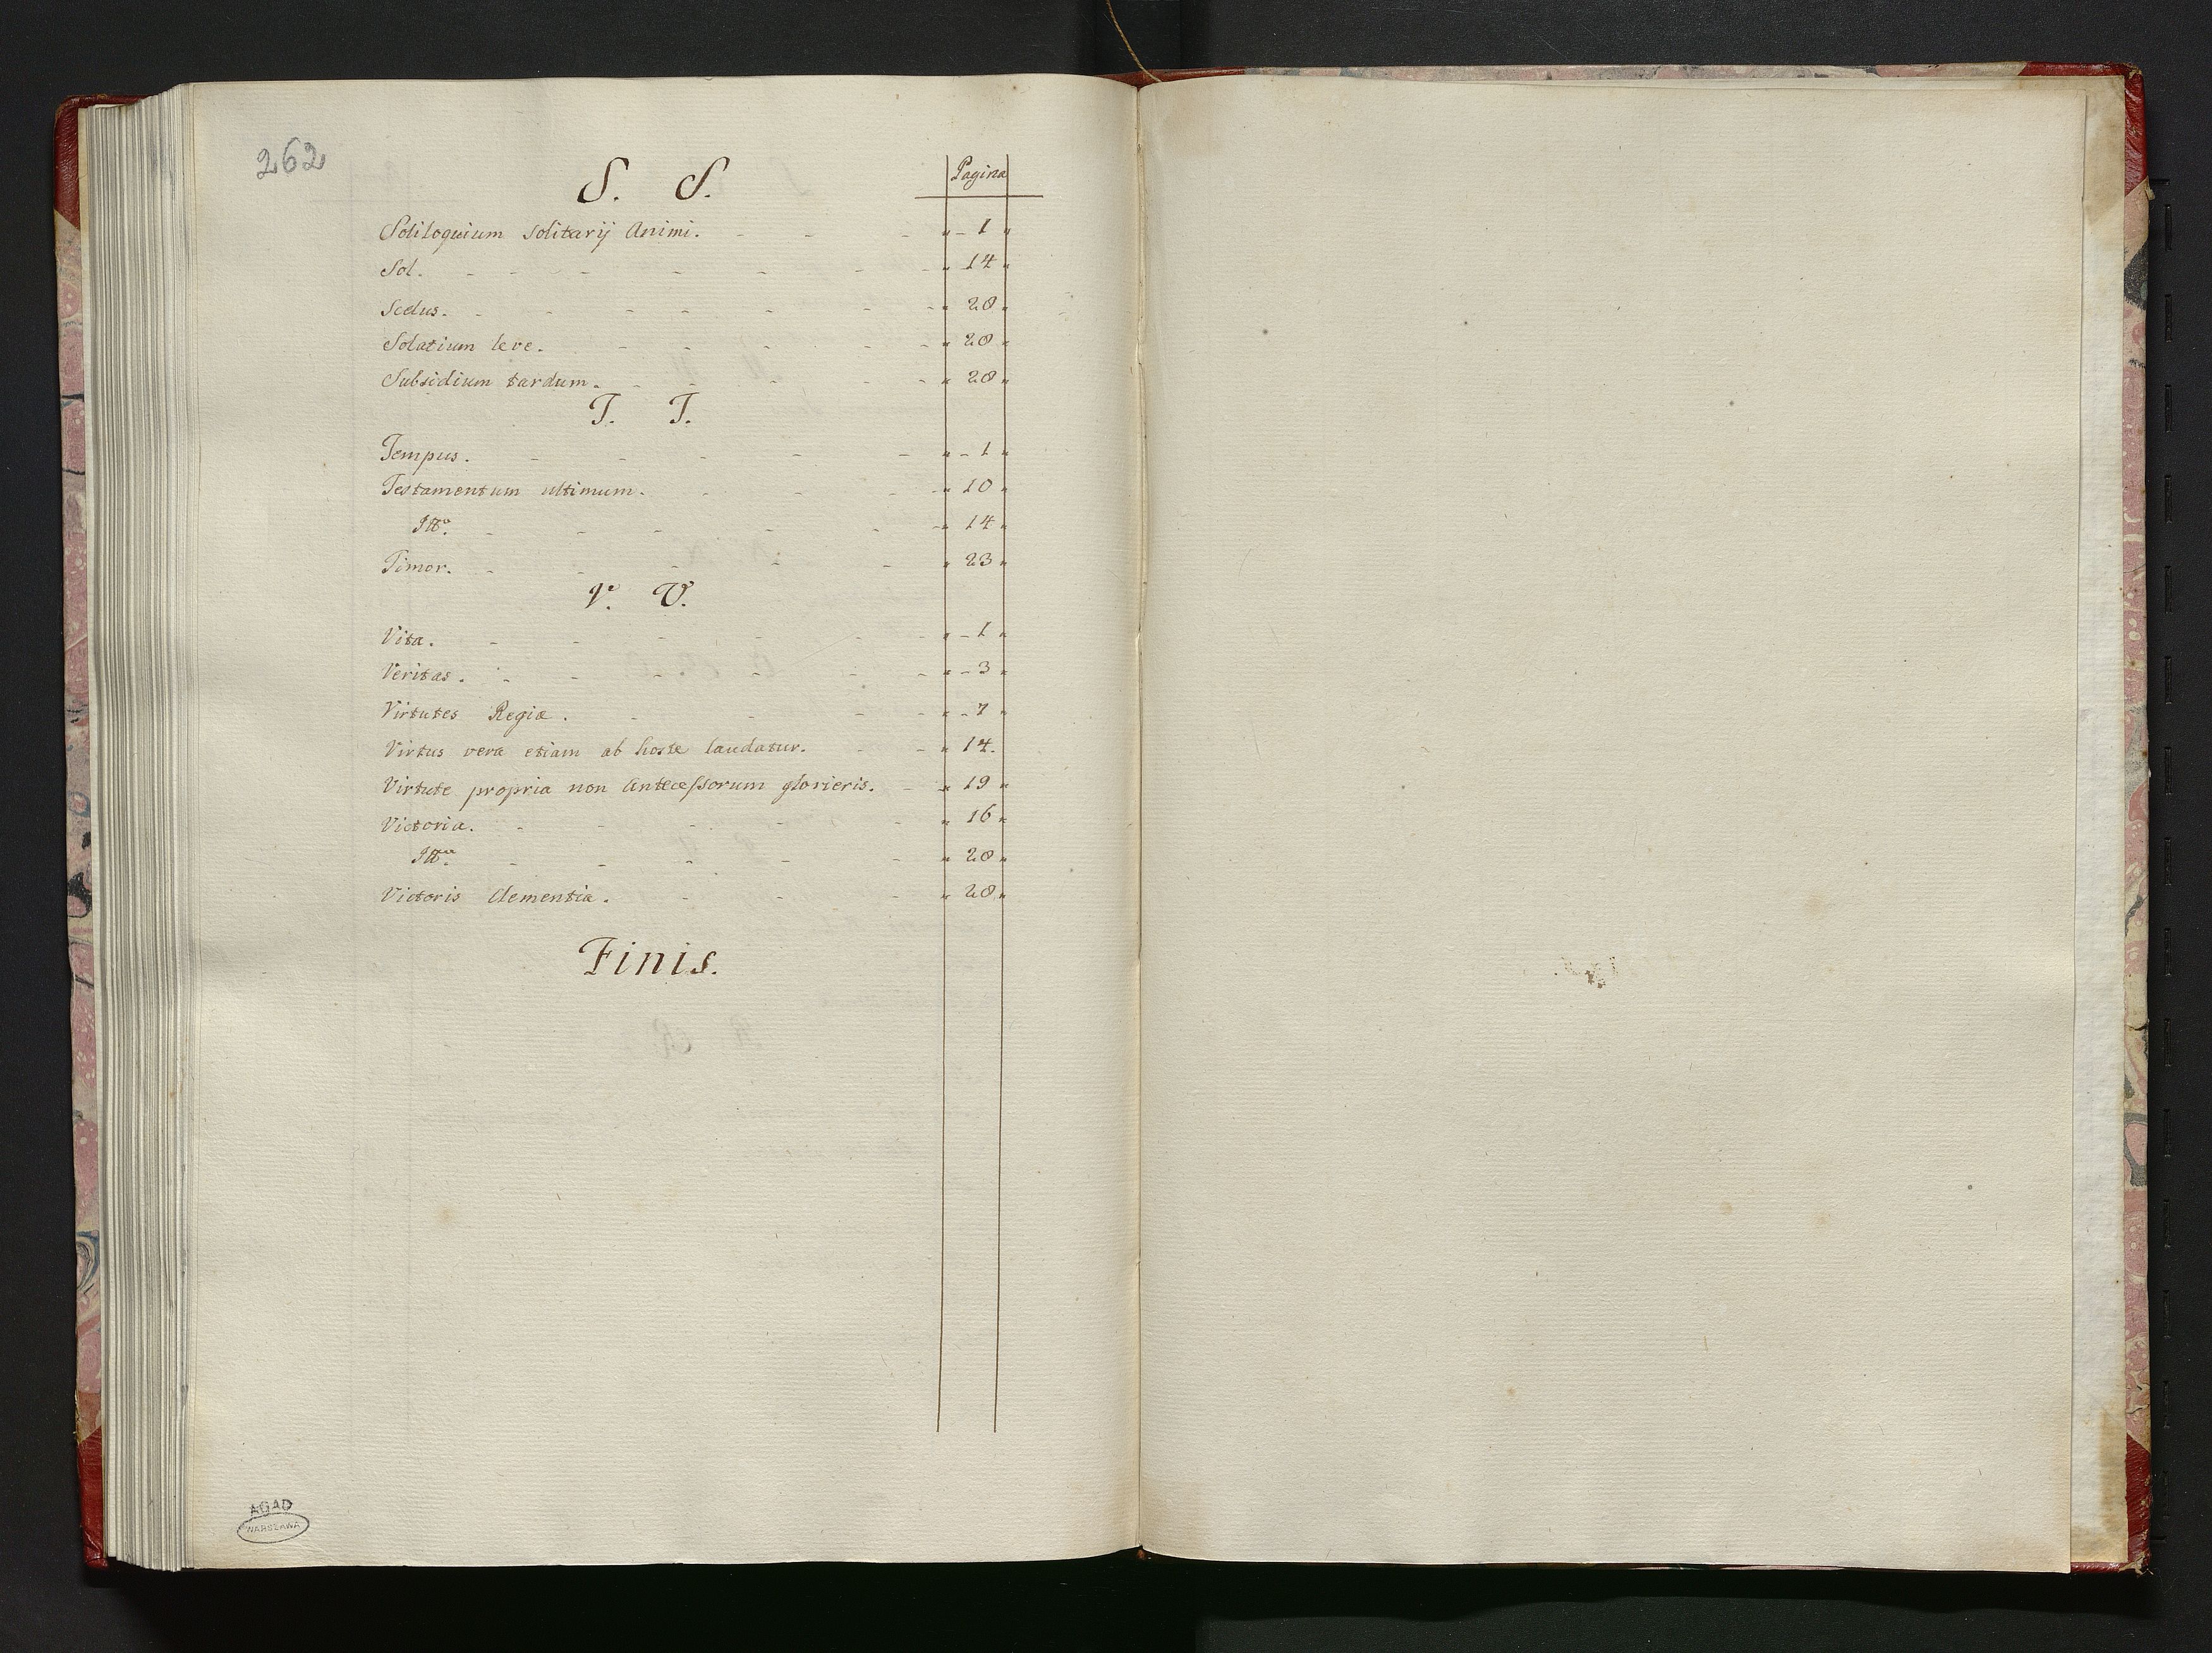 262
S. S. Pagina
Soliloquium solitarij Animi. - - - " - 1 "
Sol. - - - - - - - " 14 "
Scelus. - - - - - - - " 28 "
Solatium leve. - - - - - " 28 "
Subsidium tardum. - - - - - " 28 "
T. T.
Tempus. - - - - - " - 1 "
Testamentum ultimum. - - - - " 10 "
Itto. - - - - - - " 14 "
Timor. - - - - - " 23 "
V. V.
Vita. - - - - - - " - 1 "
Veritas. - - - - - - " - 3 "
Virtutes Regiæ. - - - - " - 7 "
Virtus vera etiam ab hoste laudatur. - - " 14.
Virtute propria non Antecessorum glorieris. - " 19 "
Victoria. - - - - - " 16 "
Itta. - - - - - " 28 "
Victoris Clementia. - - - " 28 "
Finis.
AGAD
WARSZAWA